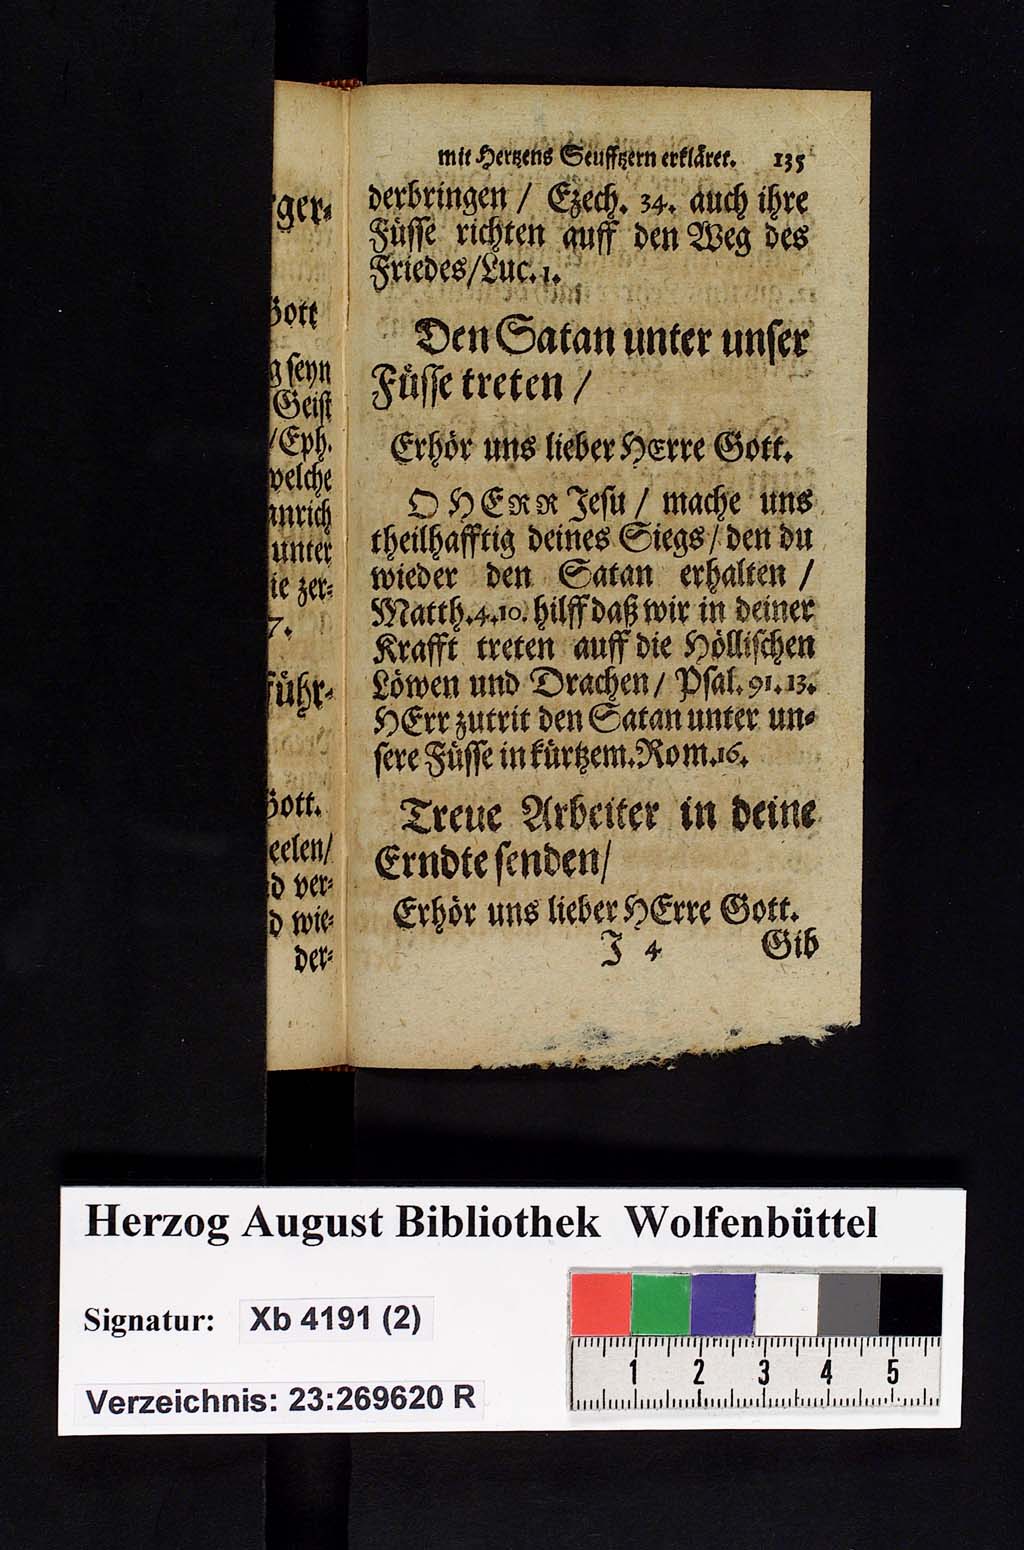 ger⸗
Gott
g seyn
Geist
/Eph.
welche
unter
zer⸗
7.
führ⸗
Gott.
eelen/
d ver⸗
d wie⸗
der⸗
mit Hertzens Seufftzern erkläret. 135
derbringen / Ezech. 34. auch ihre
Füsse richten auff den Weg des
Friedes/Luc. 1.
Den Satan unter unser
Füsse treten /
Erhör uns lieber HErre Gott.
O HERR Jesu / mache uns
theilhafftig deines Siegs / den du
wieder den Satan erhalten /
Matth. 4. 10. hilff daß wir in deiner
Krafft treten auff die Höllischen
Löwen und Drachen / Psal. 91. 13.
HErr zutrit den Satan unter un⸗
sere Füsse in kürtzem. Rom. 16.
Treue Arbeiter in deine
Erndte senden/
Erhör uns lieber HErre Gott.
J 4 Gib
Herzog August Bibliothek Wolfenbüttel
Signatur: Xb 4191 (2)
Verzeichnis: 23:269620 R
1 2 3 4 5